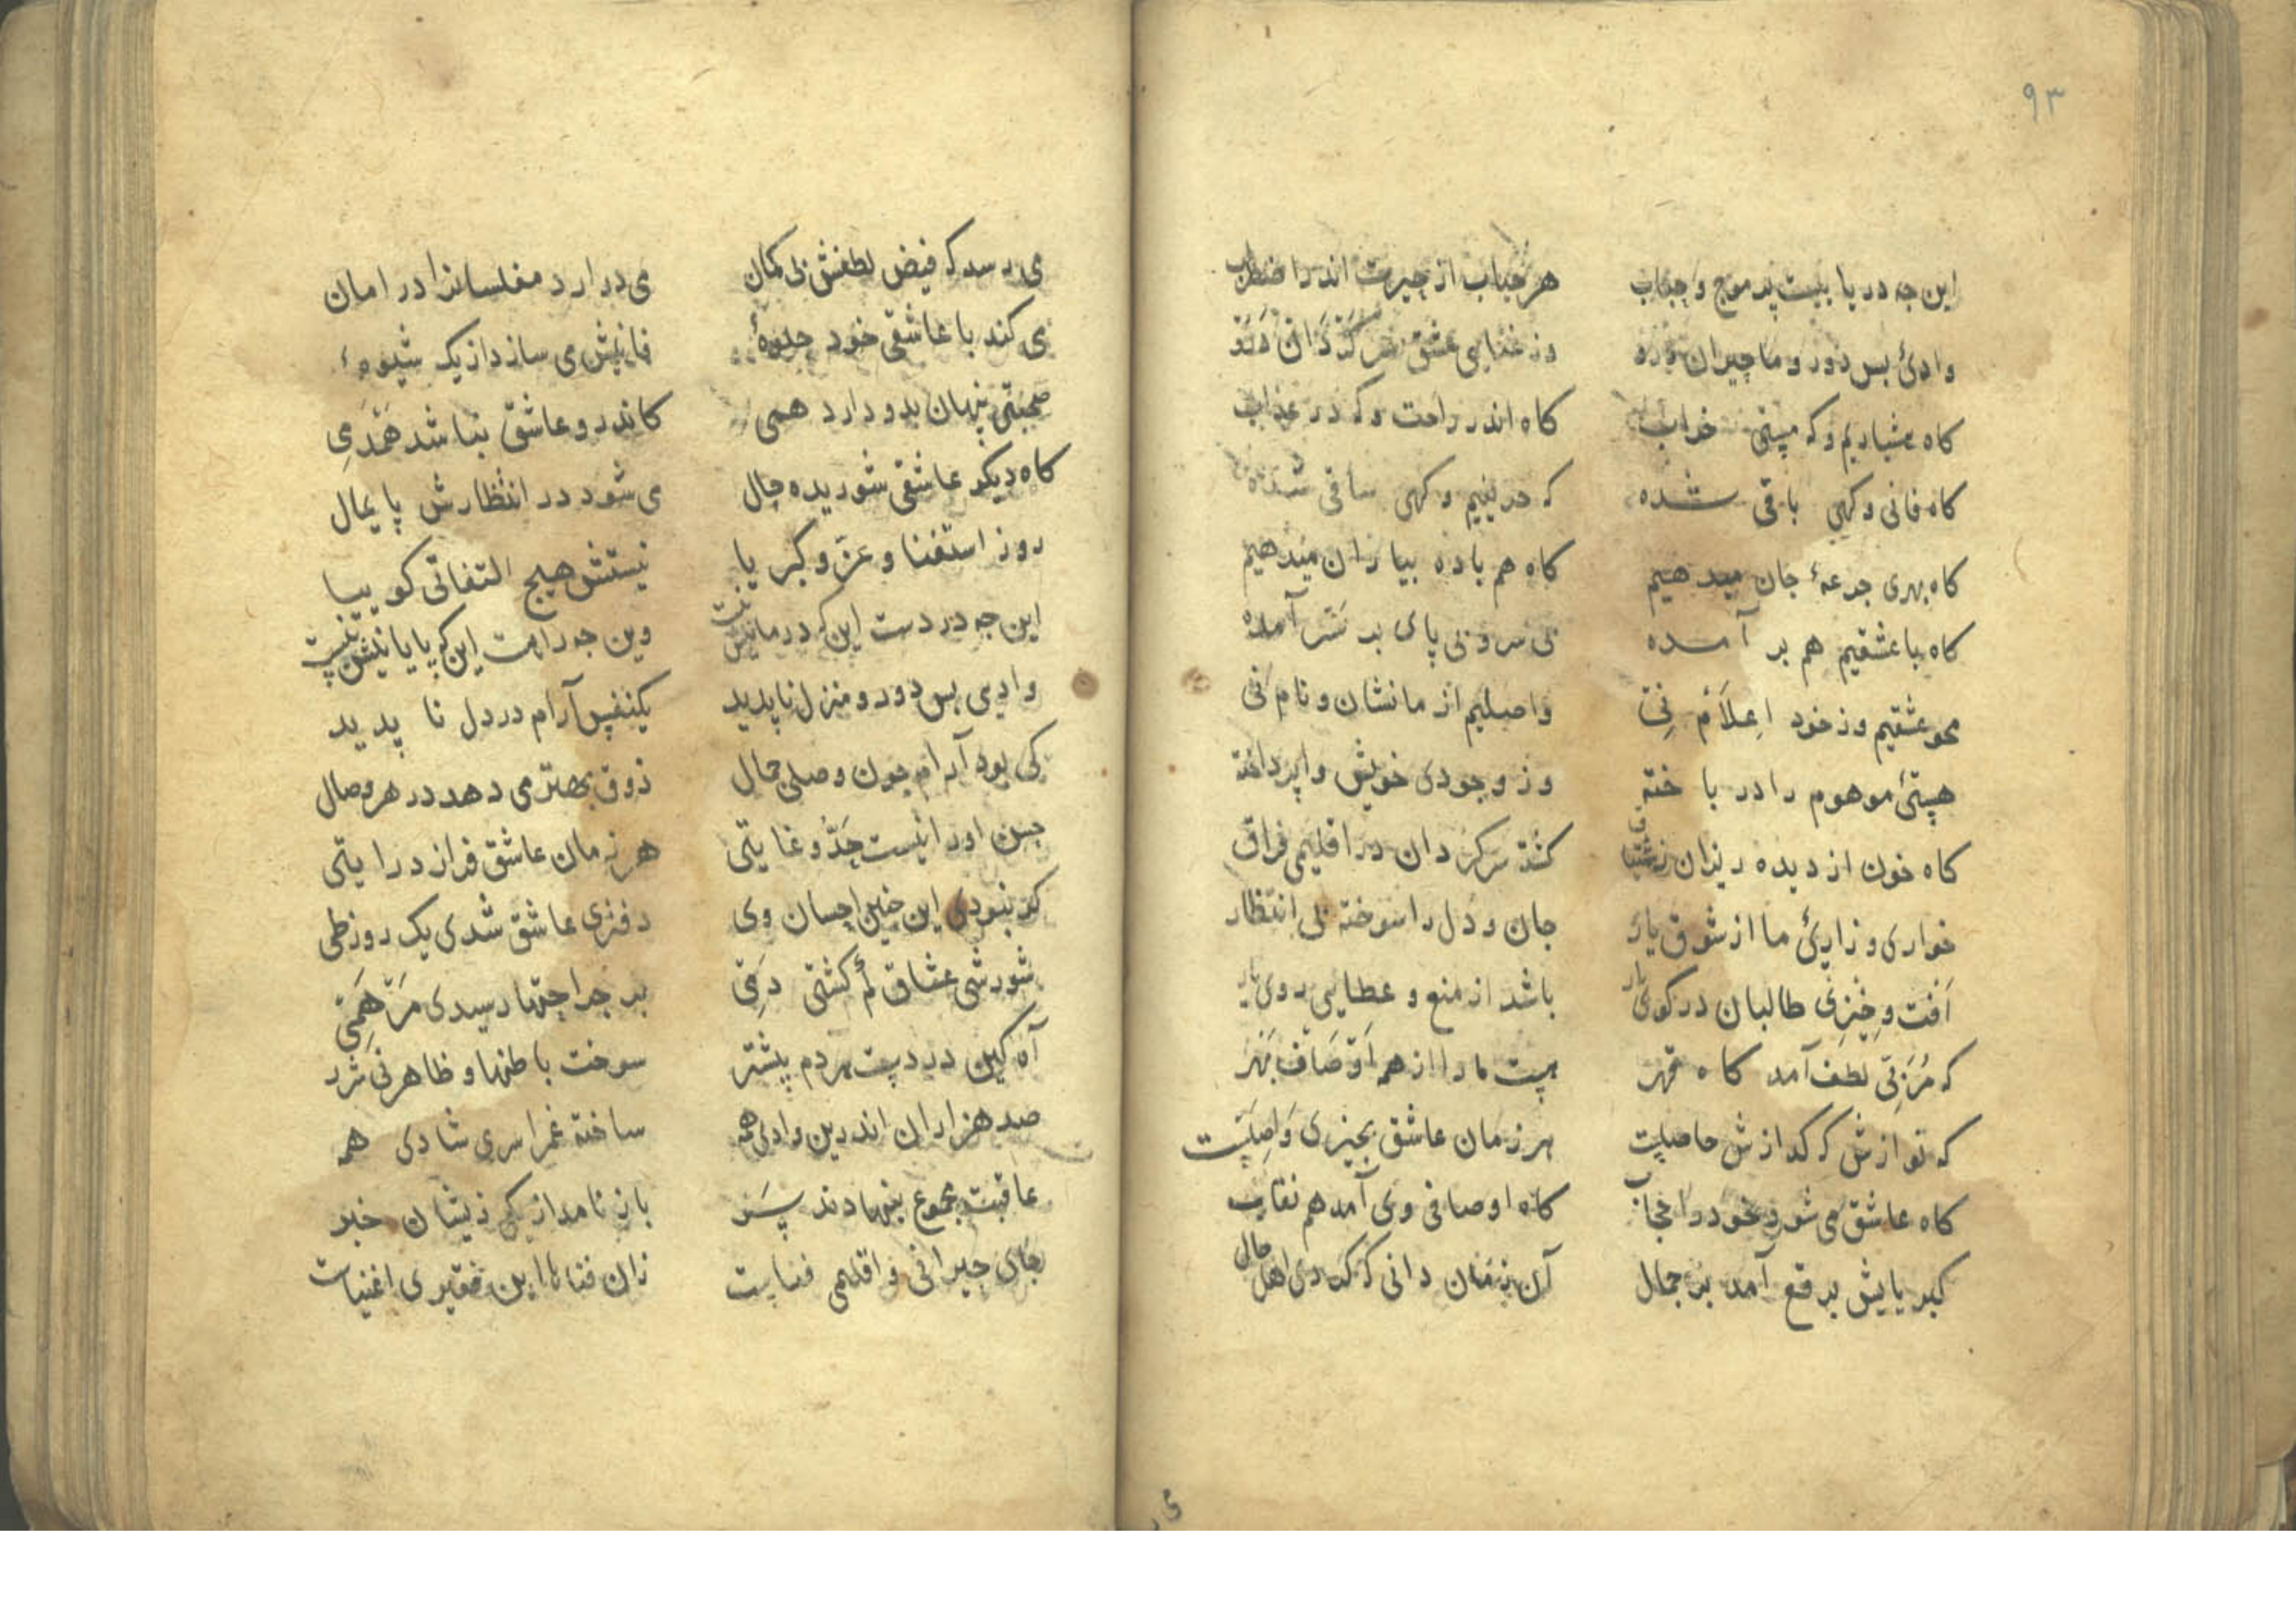 ۹۳
این جه دریا بیست پر موج و حباب هر حباب از حیرت اندر اضطراب
وادئ بس دور و ما حیران وزغنایی عشق سرکردان
کاه هشیاریم و که مستی خراب کاه اندر راحت و که در عذاب
کاه فانی و کهی باقی شده که حریفیم و کهی ساقی شده
کاه بهری جرعهٔ جان میدهیم کاه هم باده بیاران میدهیم
کاه با عشقیم هم بر آمده بی سر و بی پای بر سر آمده
محو عشقیم وز خود اعلام نی واصلیم از ما نشان و نام نی
هستئ موهوم را در باخته وز وجودی خویش وا پرداخته
کاه خون از دیده ریزان ز کشته سرکردان در اقلیمی فراق
خواری و زاریٔ ما از شوق یار جان و دل را سوخته بی انتظار
افت و خیزی طالبان در کوی یار باشد از منع و عطایی روی یار
که مزتی لطف آمد کاه قهر هست ما را از هم اوصاف بهر
که نوازش که کدازش حاصلست هر زمان عاشق بجیزی واصلست
کاه عاشق می شود خود را حجاب کاه اوصافی وی آمد هم نقاب
کبریایش برقع آمد بر جمال آن زمان دانی که کردی اهل حال
می رسد که فیض لطفش بی کمان می در ارد مفلسانرا در امان
می کند با عاشقی خود جلوهٔ فانیش می سازد از یک شیوهٔ
صحبتی پنهان بدو دارد همی کاندرو عاشق نباشد همدمی
کاه دیکر عاشقی شوریده حال می شود در انتظارش پایمال
روز استغنا و عز و کبریا نیستش هیج التفاتی کو بیا
این جه دردست این که درمانیش نیست وین جه راهست این که پایانیش نیست
وادی بس دور و منزل ناپدید یکنفس آرام در دل نا پدید
کی بود آرام جون وصلی جمال ذوق بهتر می دهد در هر وصال
حسن اورا نیست حد و غایتی هر زمان عاشق فرازد رایتی
کر نبودی این جنین احسان وی دفتری عاشق شدی یک روز طی
شورشی عشاق کم کشتی دمی بر جراحتها رسیدی مرهمی
آه کین دردیست هر دم پیشتر سوخت باطنها و ظاهر
صد هزاران اندرین وادی همه ساخته غمرا سری شادی همه
عاقبت مجموع بنهادند سر باز نامد از یکی زیشان خبر
جای حیرانی و اقلیمی فناست زان فنا تا این فقیری اغنیاست